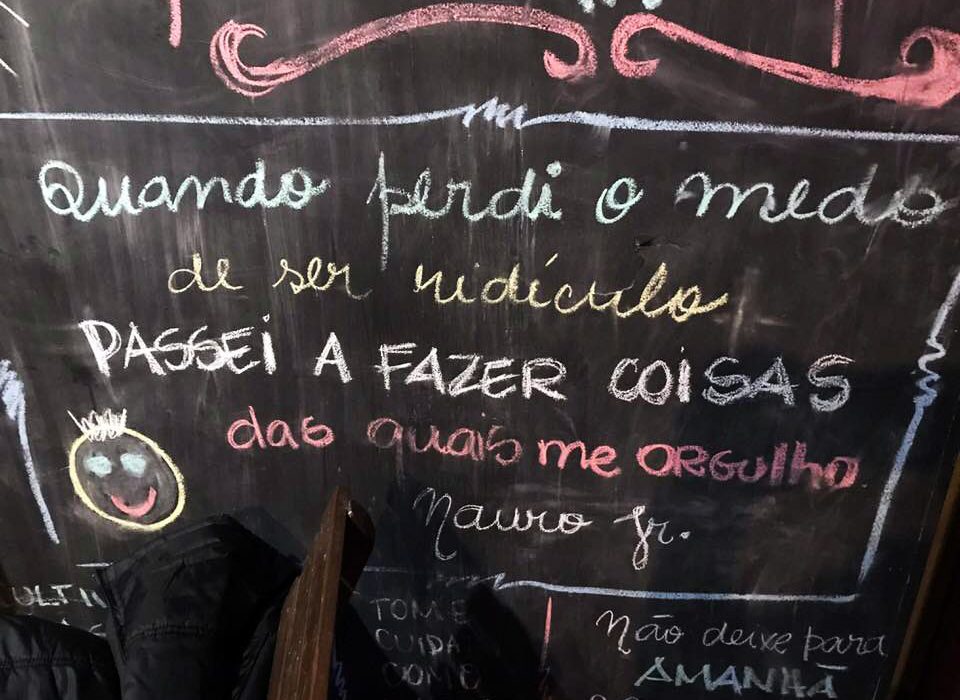 Quando perdi o medo
de ser ridículo
PASSEi A FAZER COiSAS
das quais me ORGulho
Nauro Jr.
TOME
CUIDA
COM O
Não deixe para
AMANHÃ